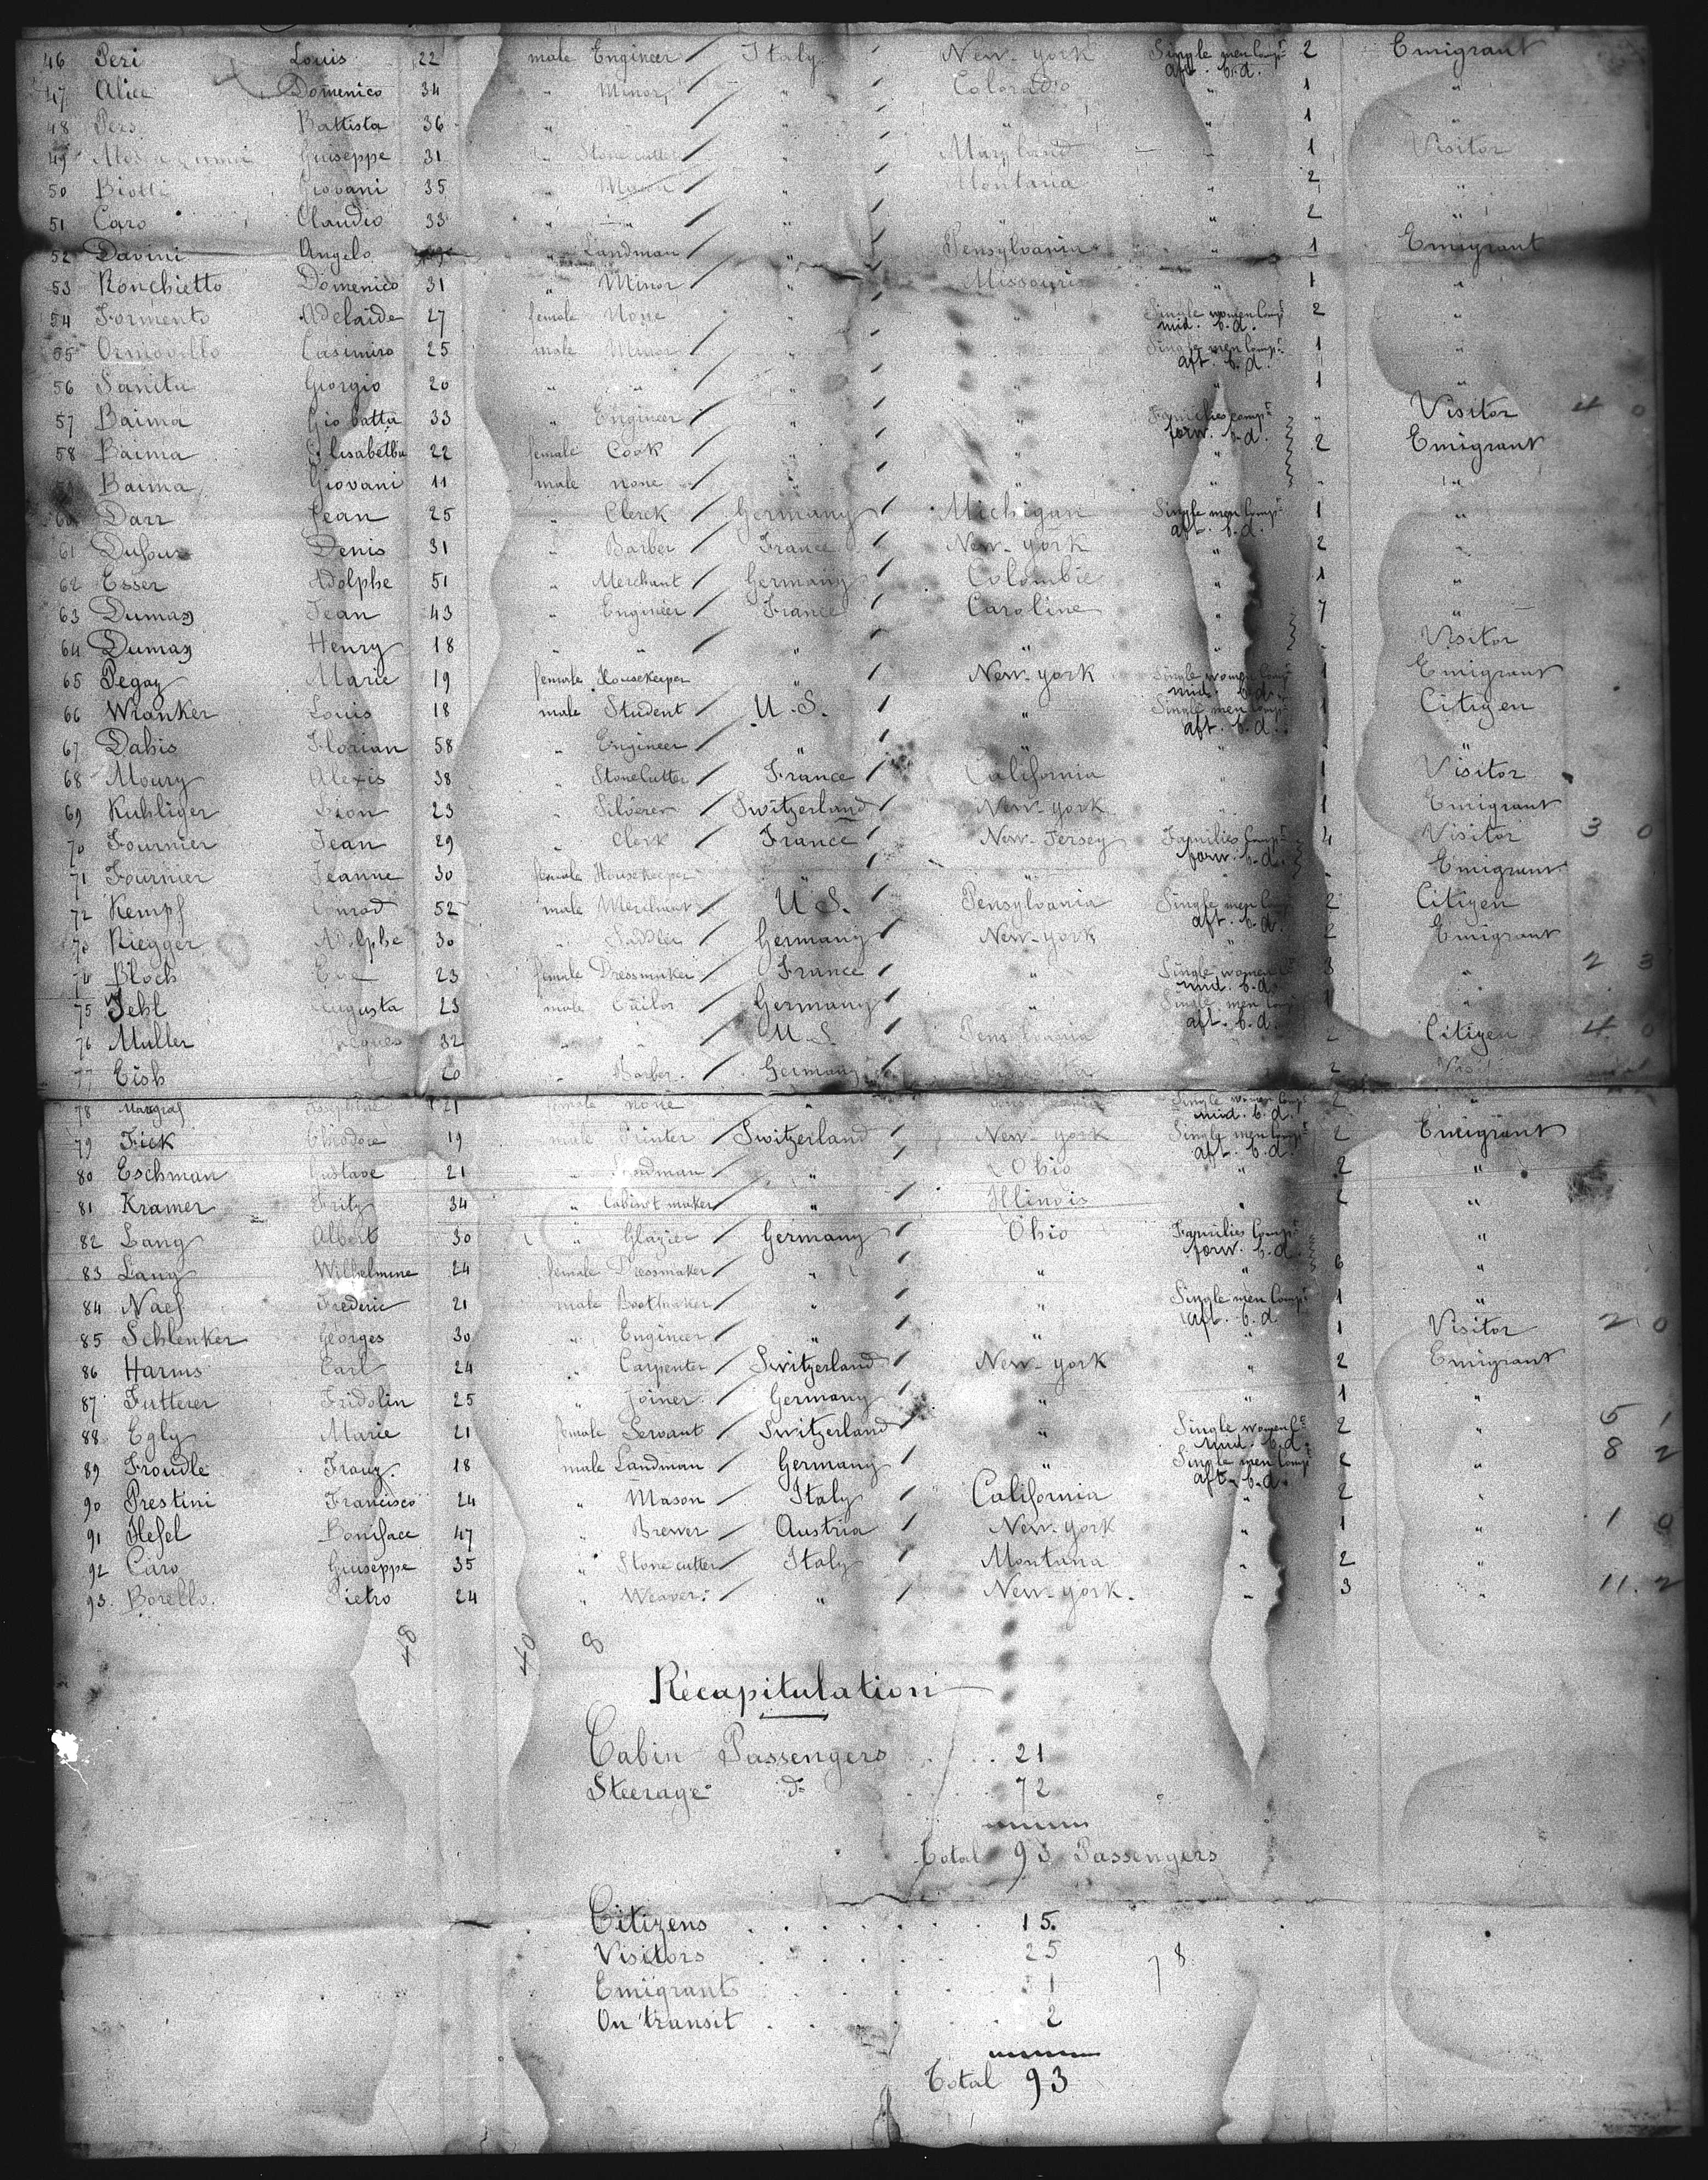 46 Peri Louis 22 male Engineer / Italy / New-York Single men Compt aft. b.d. 2 Emigrant
47 Alice Domenico 34 " Minor / " / Colorado " 1 "
48 Pers Battista 36 " " / " / " " 1 "
49 Giuseppe 31 " Stone cutter / " / Maryland " 1 Visitor
50 Biolli Giovani 35 " / " / Montana " 2 "
51 Caro Claudio 33 " " / " / " " 2 "
52 Davini Angelo " Landman / " / Pensylvania " 1 Emigrant
53 Ronchietto Domenico 31 " Minor / " / Missouri " 1 "
54 Formento Adelaide 27 female None / " / " Single women Compt mid. b.d. 2 "
55 Casimiro 25 male Minor / " / " Single men Compt aft. b.d. 1 "
56 Sanitu Giorgio 20 " " / " / " " 1 "
57 Baima Gio batta 33 " Engineer / " / " Families compt forw. b.d. " Visitor 4 0
58 Baima Elisabetha 22 female Cook / " / " " 2 Emigrant
Baima Giovani 11 male none / " / " " " "
60 Darr Jean 25 " Clerck / Germany / Michigan Single men Compt aft. b.d. 1 "
61 Dufour Denis 31 " Barber / France / New-York " 2 "
62 Esser Adolphe 51 " Merchant / Germany / Colombie " 1 "
63 Dumas Jean 43 " Engineer / France / Caroline " 7 "
64 Dumas Henry 18 " " / " / " " Visitor
65 Pegay Marie 19 female Housekeeper / " / New-York Single women Compt mid. b.d. 1 Emigrant
66 Wranker Louis 18 male Student / U.S. / " Single men Compt aft. b.d. 1 Citizen
67 Dabis Florian 58 " Engineer / " / " "
68 Moury Alexis 38 " Stone Cutter / France / California " 1 Visitor
69 Kubliger Leon 23 " Silverer / Switzerland / New-York " 1 Emigrant
70 Fournier Jean 29 " Clerk / France / New-Jersey Families Compt forw. b.d. 4 Visitor 3 0
71 Fournier Jeanne 30 female Housekeeper / " / " " Emigrant
72 Kempf Conrad 52 male Merchant / U.S. / Pensylvania Single men Compt aft. b.d. 2 Citizen
73 Riegger Adolphe 30 " Saddler / Germany / New-York " 2 Emigrant
74 Bloch Eve 23 female Dressmaker / France / " Single women Ct mid. b.d. 3 " 2 3
75 Jehl Augusta 23 male Tailor / Germany / " Single men Compt aft. b.d. 1 "
76 Muller Jacques 32 " " / U.S. / Pensylvania " 2 Citizen 4 0
77 Eish 20 " Barber / Germany / 2 Visitor
78 Margraf Josephine 21 female none / " / Single women Compt mid. b.d. 2 "
79 Fick Théodore 19 male Printer / Switzerland / New-York Single men Compt aft. b.d. 2 Emigrant
80 Eschman Gustave 21 " / " / Ohio " 2 "
81 Kramer Fritz 34 " Cabinet maker / " / Illinois " 2 "
82 Lang Albert 30 " Glazier / Germany / Ohio Families Compt forw. b.d. "
83 Lang Wilhelmine 24 female Dressmaker / " / " " 6 "
84 Naef Frederic 21 male Bootmaker / " / " Single men Compt aft. b.d. 1 "
85 Schlenker Georges 30 " Engineer / " / " " 1 Visitor 2 0
86 Harms Carl 24 " Carpenter / Switzerland / New-York " 2 Emigrant
87 Futterer Fridolin 25 " Joiner / Germany / " " 1 "
88 Egly Marie 21 female Servant / Switzerland / " Single women Ct mid. b.d. 2 " 5 1
89 Froudle Franz 18 male Landman / Germany / " Single men Compt aft. b.d. 2 " 8 2
90 Prestini Francisco 24 " Mason / Italy / California " 2 "
91 Hefel Boniface 47 " Brewer / Austria / New-York " 1 " 1 0
92 Caro Giuseppe 35 " Stone cutter / Italy / Montana " 2 "
93. Borello. Pietro 24 " Weaver / " / New-York. " 3 " 11. 2
48 40 8
Récapitulation
Cabin Passengers . . . 21
Steerage do . . . 72
Total 93 Passengers
Citizens . . . . . . . . 15.
Visitors . . . . . 25 78
Emigrants . . . . 1
On transit . . . . 2
Total 93